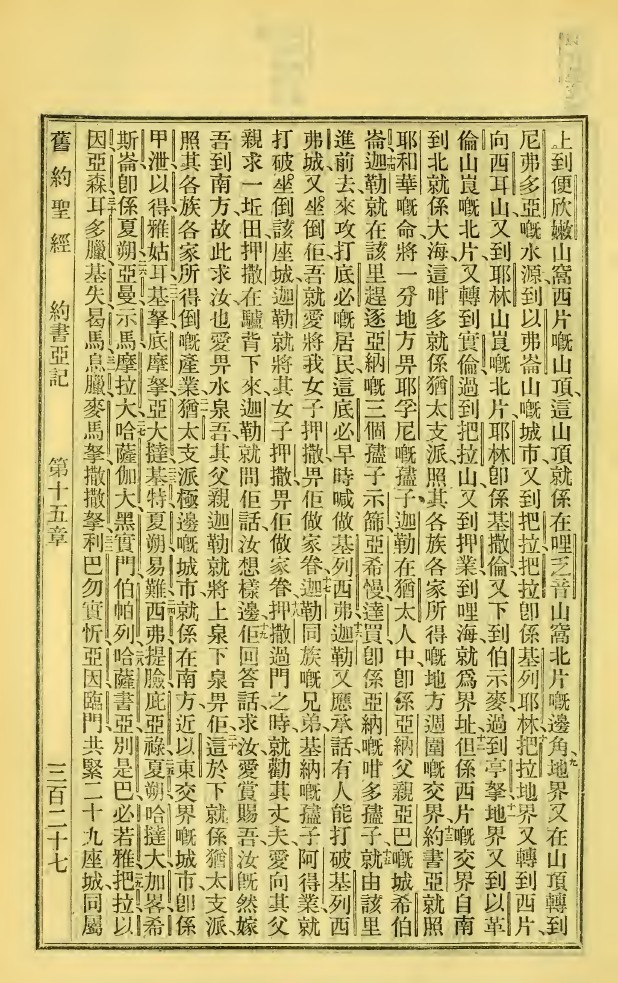 上到便欣嫩山窩西片嘅山頂這山頂就係在哩乏音山窩北片嘅邊角九地界又在山頂轉到
尼弗多亞嘅水源到以弗崙山嘅城市又到把拉把拉卽係基列耶林把拉地界又轉到西片
向西耳山又到耶林山崀嘅北片耶林卽係基撒倫又下到伯示麥過到亭拏地界十一又到以革
倫山崀嘅北片又轉到實倫過到把拉山又到押業到哩海就爲界址十二但係西片嘅交界自南
到北就係大海這咁多就係猶太支派照其各族各家所得嘅地方週圍嘅交界十三約書亞就照
耶和華嘅命將一分地方畀耶孚尼嘅孻子迦勒在猶太人中卽係亞納父親亞巴嘅城希伯
崙十四迦勒就在該里趕逐亞納嘅三個孻子示篩亞希慢達買卽係亞納嘅咁多孻子十五就由該里
進前去來攻打底必嘅居民這底必早時喊做基列西弗十六迦勒又應承話有人能打破基列西
弗城又坐倒佢吾就愛將我女子押撒畀佢做家眷十七迦勒同族嘅兄弟基納嘅孻子阿得業就
打破坐倒該座城迦勒就將其女子押撒畀佢做家眷十八押撒過門之時就勸其丈夫愛向其父
親求一坵田押撒在驢背下來迦勒就問佢話汝想樣邊十九佢回答話求汝愛賞賜吾汝旣然嫁
吾到南方故此求汝也愛畀水泉吾其父親迦勒就將上泉下泉畀佢二十這於下就係猶太支派
照其各族各家所得倒嘅產業二一猶太支派極邊嘅城市就係在南方近以東交界嘅城市卽係
甲泄以得雅姑耳二二基拏底摩拏亞大撻二三基特夏朔易難二四西弗提臉庇亞祿二五夏朔哈撻大加畧希
斯崙卽係夏朔二六亞曼示馬摩拉大二七哈薩伽大黑實門伯帕列二八哈薩書亞別是巴必若雅二九把拉以
因亞森三十耳多臘基失曷馬三一息臘麥馬拏撒撒拏三二利巴勿實忻亞因臨門共緊二十九座城同屬
舊約聖經 約書亞記 第十五章 三百二十七